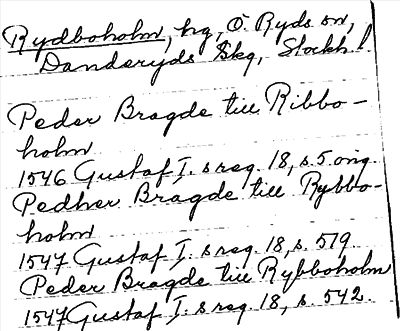 Rydboholm, hg, Ö. Ryds sn,
Danderyds Skg, Stockh. l.
Peder Bragde till Ribbo-
holm
1546 Gustaf I:s reg. 18, s. 5 öng.
Pedher Bragde till Rybbo-
holm
1547 Gustaf I:s reg. 18, s. 519.
Peder Bragde till Rybboholm
1547 Gustaf I:s reg. 18, s. 542.